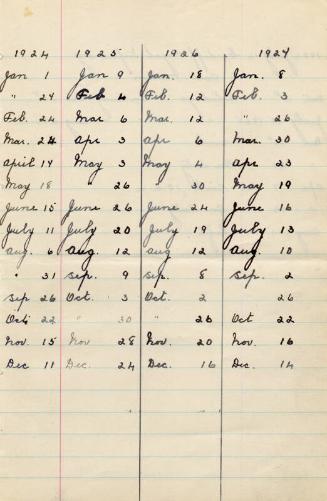 1924 1925 1926 1927
Jan 1 Jan 9 Jan. 18 Jan. 8
" 24 Feb 4 Feb. 12 Feb. 3
Feb. 24 Mar 6 Mar. 12 " 26
Mar. 24 Apr 3 Apr 6 Mar. 30
April 14 May 3 May 4 Apr 23
May 18 " 26 " 30 May 19
June 15 June 26 June 24 June 16
July 11 July 20 July 19 July 13
Aug. 6 Aug. 12 Aug 12 Aug. 10
" 31 Sep. 9 Sep. 8 Sep. 2
Sep 26 Oct. 3 Oct. 2 26
Oct 22 " 30 " 26 Oct 22
Nov. 15 Nov 28 Nov. 20 Nov. 16
Dec 11 Dec. 24 Dec. 16 Dec. 14